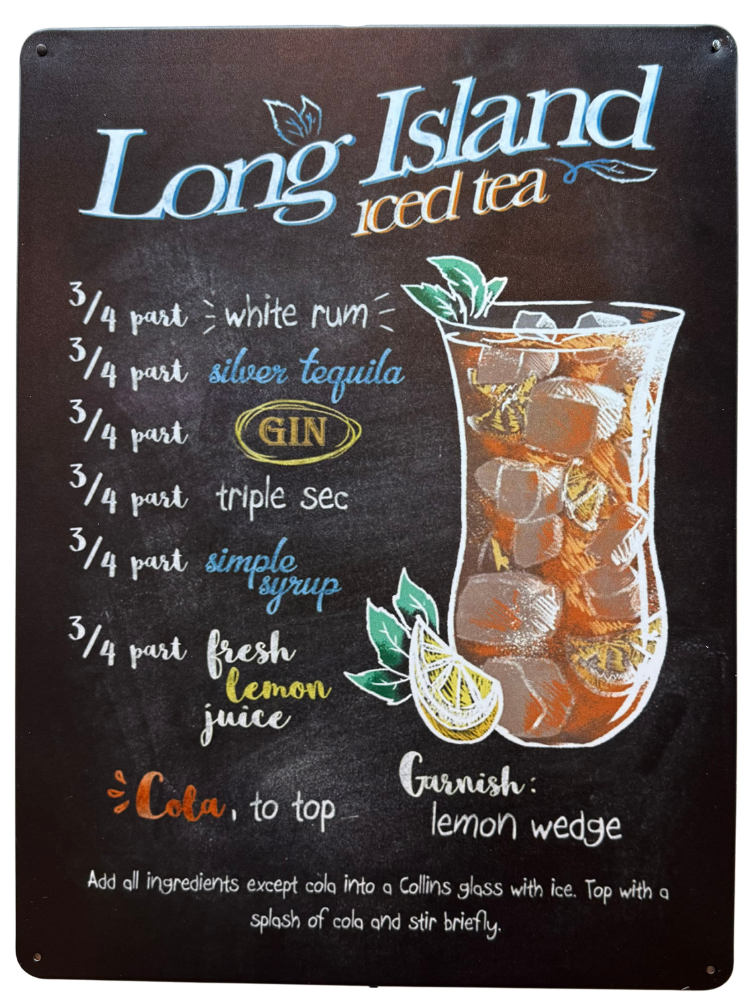 Long Island
iced tea
3/4 part white rum
3/4 part silver tequila
3/4 part GIN
3/4 part triple sec
3/4 part simple
syrup
3/4 part fresh
lemon
juice
Cola, to top
Garnish:
lemon wedge
Add all ingredients except cola into a Collins glass with ice. Top with a
splash of cola and stir briefly.